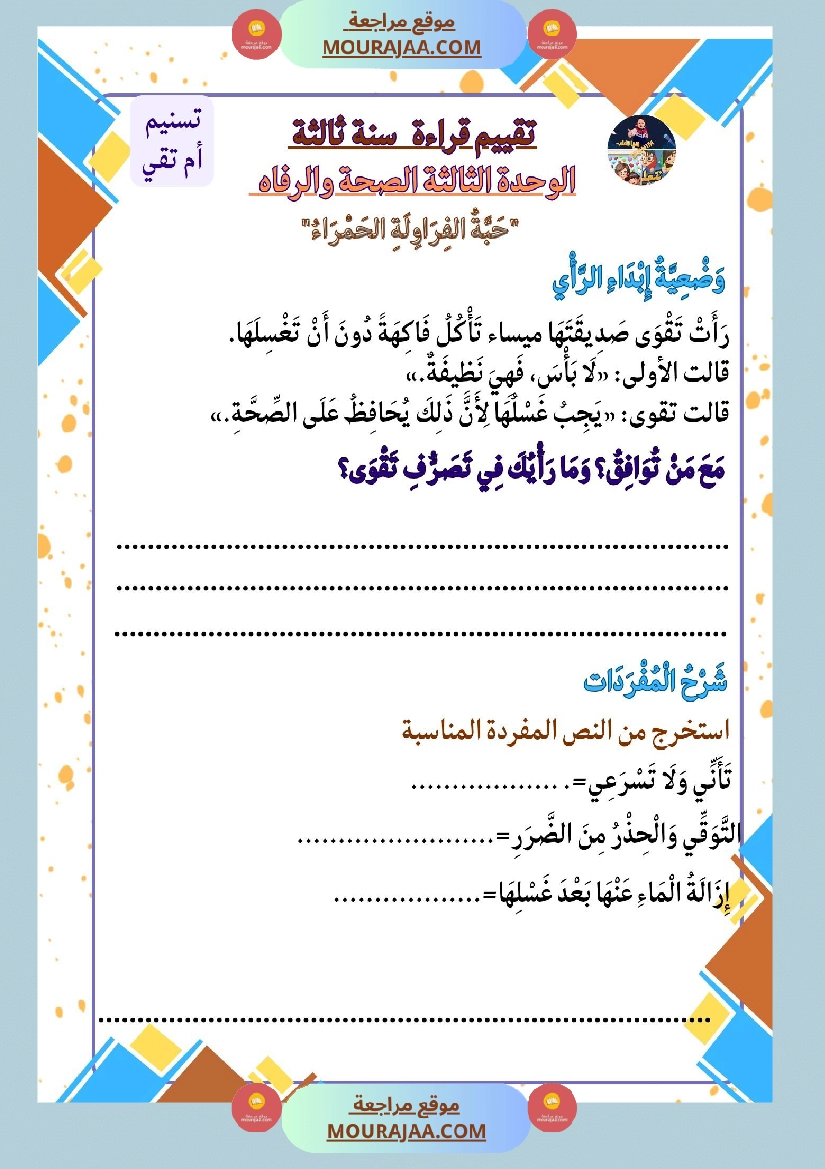 موقع مراجعة
MOURAJAA.COM
تسنيم
أم تقي
تقييم قراءة سنة ثالثة
الوحدة الثالثة الصحة والرفاه
"حَبَّةُ الفِرَاوِلَةِ الحَمْرَاءُ"
وَضْعِيَّةُ إِبْدَاءِ الرَّأْيِ
رَأَتْ تَقْوَى صَدِيقَتَهَا ميساء تَأْكُلُ فَاكِهَةً دُونَ أَنْ تَغْسِلَهَا.
قالت الأولى: «لَا بَأْسَ، فَهِيَ نَظِيفَةٌ.»
قالت تقوى: «يَجِبُ غَسْلُهَا لِأَنَّ ذَلِكَ يُحَافِظُ عَلَى الصِّحَّةِ.»
مَعَ مَنْ تُوَافِقُ؟ وَمَا رَأْيُكَ فِي تَصَرُّفِ تَقْوَى؟
................................................................................
................................................................................
................................................................................
شَرْحُ الْمُفْرَدَات
استخرج من النص المفردة المناسبة
تَأَنِّي وَلَا تَسْرَعِي=. ..................
التَّوَقِّي وَالْحِذْرُ مِنَ الضَّرَرِ=........................
إِزَالَةُ الْمَاءِ عَنْهَا بَعْدَ غَسْلِهَا=..................
................................................................................
موقع مراجعة
MOURAJAA.COM